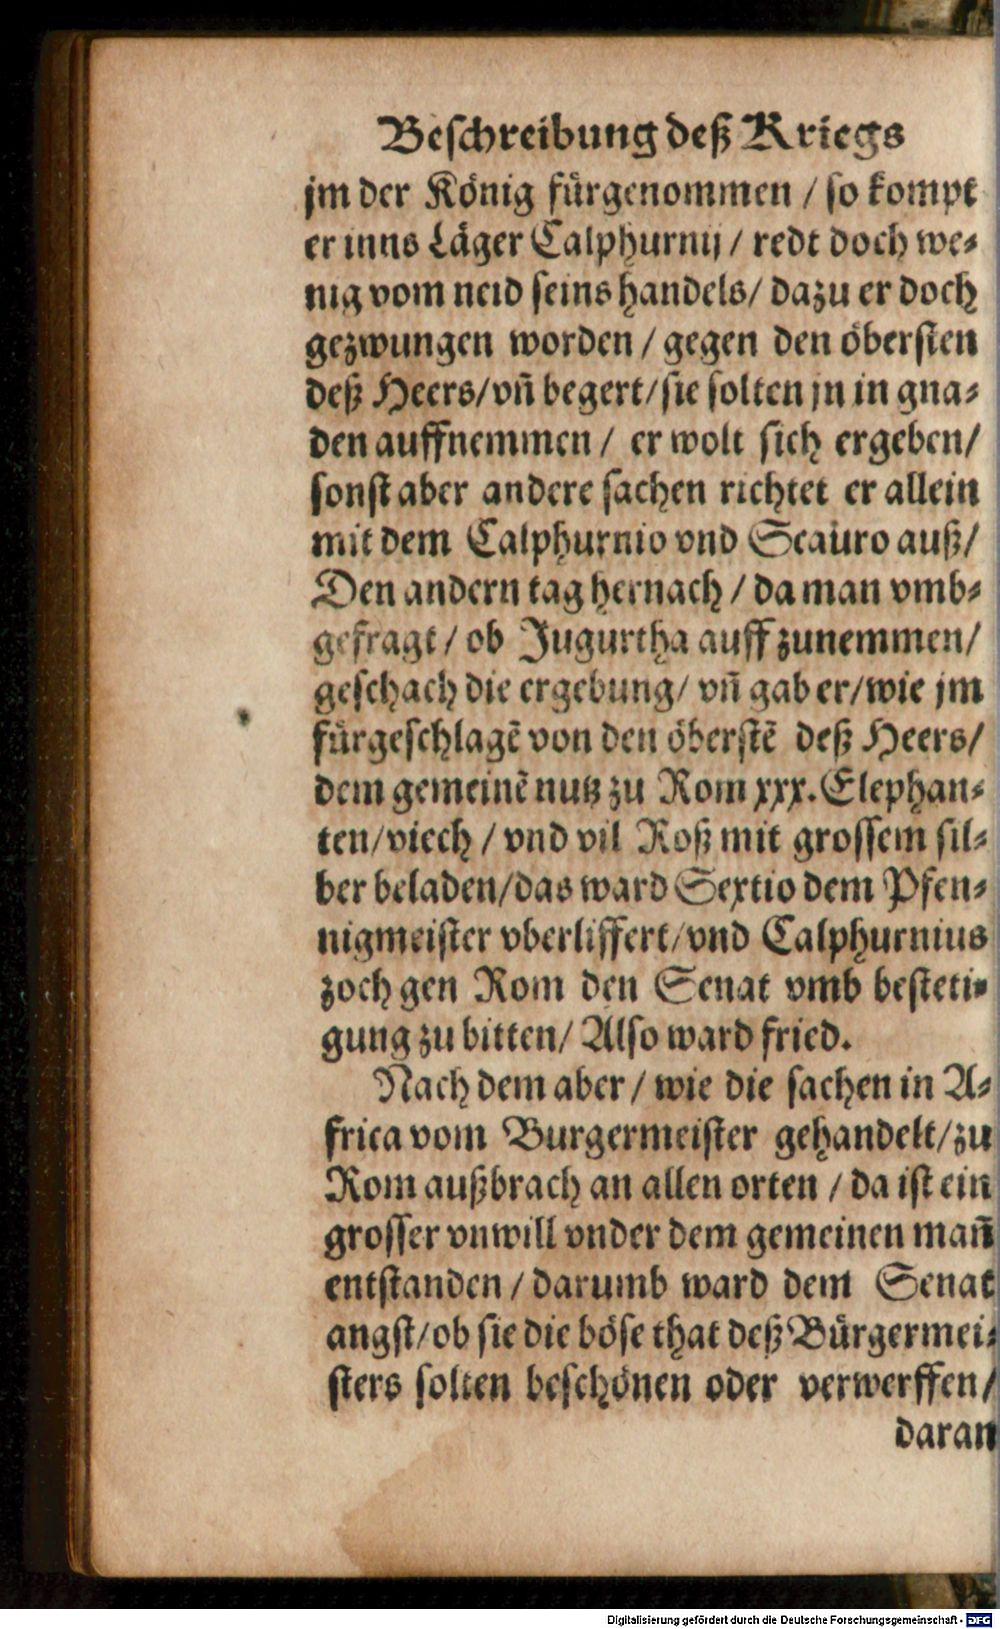 Beschreibung deß Kriegs
jm der König fürgenommen / so kompt
er inns Läger Calphurnij / redt doch we⸗
nig vom neid seins handels / dazu er doch
gezwungen worden / gegen den öbersten
deß Heers / vn̄ begert / sie solten jn in gna⸗
den auffnemmen / er wolt sich ergeben /
sonst aber andere sachen richtet er allein
mit dem Calphurnio vnd Scauro auß /
Den andern tag hernach / da man vmb⸗
gefragt / ob Jugurtha auff zunemmen /
geschach die ergebung / vn̄ gab er / wie jm
fürgeschlagē von den öberstē deß Heers /
dem gemeinē nutz zu Rom xxx. Elephan⸗
ten / viech / vnd vil Roß mit grossem sil⸗
ber beladen / das ward Sextio dem Pfen⸗
nigmeister vberliffert / vnd Calphurnius
zoch gen Rom den Senat vmb besteti⸗
gung zu bitten / Also ward fried.
Nach dem aber / wie die sachen in A⸗
frica vom Burgermeister gehandelt / zu
Rom außbrach an allen orten / da ist ein
grosser vnwill vnder dem gemeinen man̄
entstanden / darumb ward dem Senat
angst / ob sie die böse that deß Bürgermei⸗
sters solten beschönen oder verwerffen /
daran
Digitalisierung gefördert durch die Deutsche Forschungsgemeinschaft - DFG